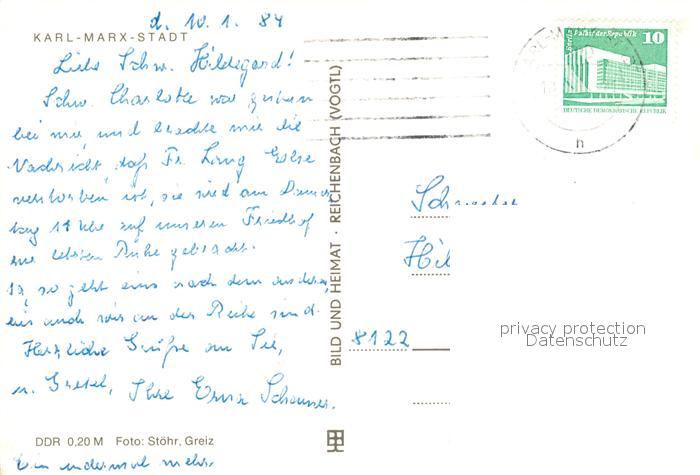 d. 10.1.84
KARL-MARX-STADT
Liebe Schw. Hildegard!
Schw. Charlotte war gestern
bei mir und brachte mir die
Nachricht, daß Fr. Lang Else
verstorben ist, sie wird am Donners
tag 11 Uhr auf unseren Friedhof
zur letzten Ruhe gebracht.
Ja, so geht eins nach dem anderen,
bis auch wir an der Reihe sind.
Herzliche Grüße an Sie,
u. Gretel, Ihre Erna
DDR 0,20 M Foto: Stöhr, Greiz
Ein andermal mehr.
BILD UND HEIMAT · REICHENBACH (VOGTL)
Berlin Palast der Republik
10
DEUTSCHE DEMOKRATISCHE REPUBLIK
h
Schwester
Hil
8122
privacy protection
Datenschutz